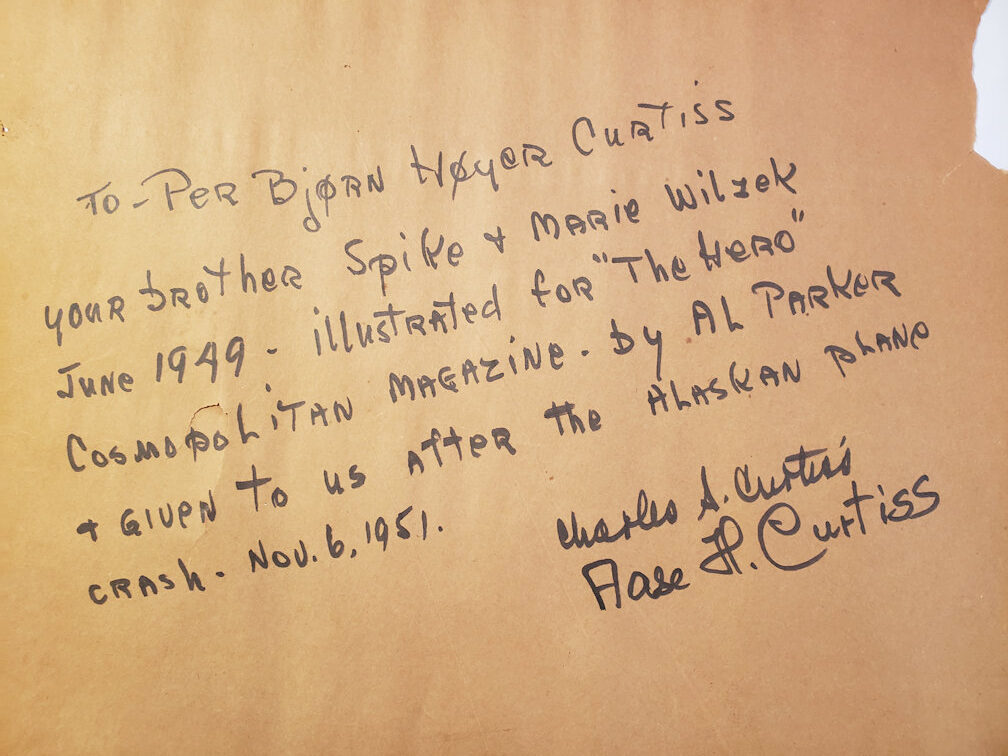 To - Per Bjørn Høyer Curtiss
your brother Spike + Marie Wilzek
June 1949 - illustrated for "The Hero"
Cosmopolitan Magazine. by Al Parker
+ given to us after the Alaskan plane
crash. Nov. 6, 1951.
Charles A. Curtiss
Aase H. Curtiss